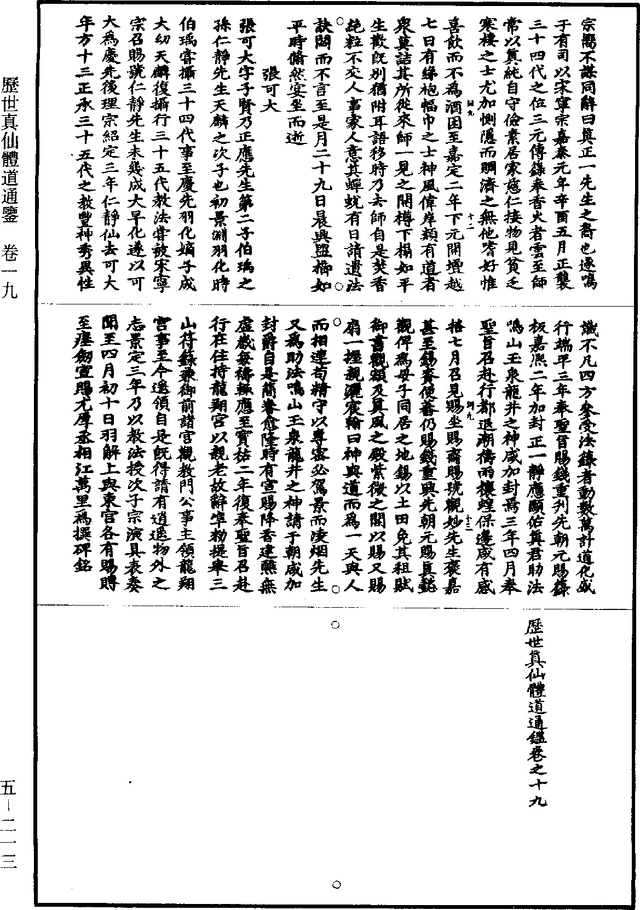 宗嚮不謀同辭曰真正一先生之裔也遂鳴
于有司以宋寧宗嘉泰元年辛酉五月正襲
三十四代之位三元傳籙奉香火者雲至師
常以真純自守儉素居家慈仁接物見貧乏
寒棲之士尤加惻隱而賙濟之無他嗜好惟
喜飲而不為酒困至嘉定二年下元開壇越
七日有綠袍幅巾之士神風偉岸類有道者
眾莫詰其所從來師一見之開樽下榻如平
生歡既別猶附耳語移時乃去師自是焚香
絕粒不交人事家人意其蟬蛻有日請遺法
訣閟而不言至是月二十九日晨興盥櫛如
平時翛然宴坐而逝
張可大
張可大字子賢乃正應先生第二子伯瑀之
孫仁靜先生天麟之次子也初景淵羽化時
伯瑀嘗攝三十四代事至慶先羽化嫡子成
大幼天麟復攝行三十五代教法嘗被宋寧
宗召賜號仁靜先生未幾成大早化遂以可
大為慶先後理宗紹定三年仁靜仙去可大
年方十三正承三十五代之教豐神秀異性
識不凡四方參受法籙者動數萬計道化盛
行端平三年奉聖旨賜錢重刊先朝元賜籙
板嘉熙二年加封正一靜應顯佑真君助法
鳴山王泉龍井之神咸加封焉三年四月奉
聖旨召赴行都退潮禱雨禳蝗保邊咸有感
格七月召見賜坐賜齋賜號觀妙先生褒嘉
甚至錫賚便蕃仍賜錢重興先朝元賜真懿
觀俾為母子同居之地錫以土田免其租賦
御書觀額及真風之殿紫微之閣以賜又賜
扇一握親灑宸翰曰神與道而為一天與人
而相連苟精守以專密必駕景而凌烟先生
又為助法鳴山王泉龍井之神請于朝咸加
封爵自是簡眷愈隆時有宮賜降香建醮無
虛歲每禱輒應至寶祐二年復奉聖旨召赴
行在住持龍翔宮以親老故辭準勑提舉三
山符籙兼御前諸宮觀教門公事主領龍翔
宮事至今遙領自是既得請有逍遙物外之
志景定三年乃以教法授次子宗演具表奏
聞至四月初十日羽解上與東宮各有賜賻
至瘞劒宣賜尤厚丞相江萬里為撰碑銘
歷世真仙體道通鑑卷之十九
歷世真仙體道通鑒 卷一九
五—二一三